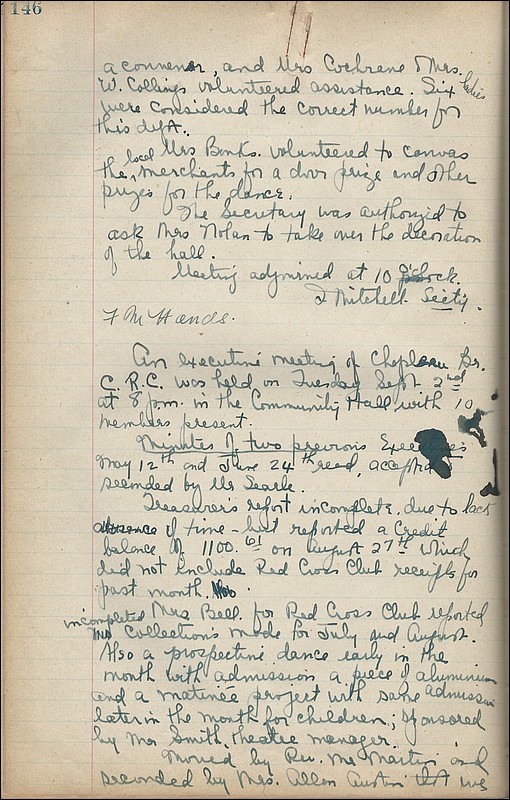 146
a convenor, and Mrs Cochrane & Mrs.
W. Collings volunteered assistance. Six ladies
were considered the correct number for
this dept.
Mrs Banks. volunteered to canvas
the local merchants for a door prize and other
prizes for the dance.
The Secretary was authorized to
ask Mrs Nolan to take over the decoration
of the hall.
Meeting adjourned at 10 o'clock.
I Mitchell Sec'ty.
F M Hands.
An executive meeting of Chapleau Br.
C. R. C. was held on Tuesday Sept 2nd
at 8 p.m. in the Community Hall with 10
members present.
Minutes of two previous Executives
May 12th and June 24th read, accepted
seconded by Mr Searle.
Treasurer's report incomplete, due to lack
of time - but reported a Credit
balance of 1100.61 on August 27th which
did not include Red Cross Club receipts for
past month.
Mrs Bell. for Red Cross Club reported
incompleted collections made for July and August.
Also a prospective dance early in the
month with admission a piece of aluminium
and a matineé project with same admission
later in the month for children, sponsored
by Mr Smith, theatre manager.
Moved by Rev. Mr Martin and
seconded by Mrs. Allen Austin that we